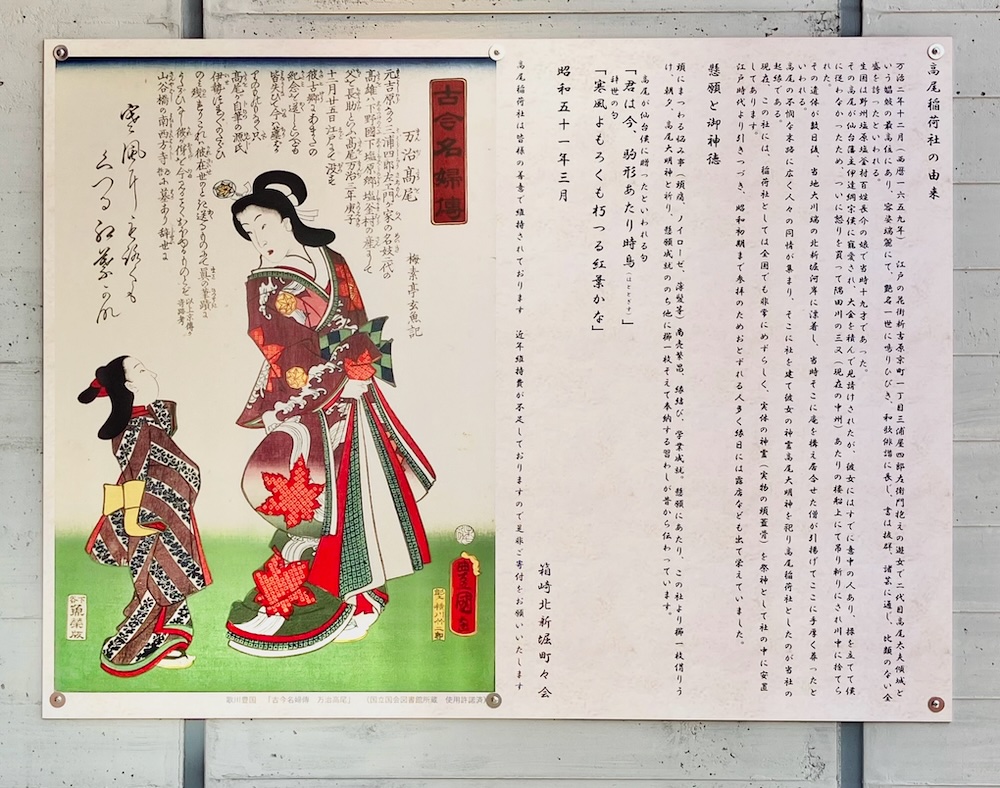 高尾稲荷社の由来
万治二年十二月(西暦一六五九年) 江戸の花街新吉原京町一丁目三浦屋四郎左衛門抱えの遊女で二代目高尾太夫傾城と
いう娼妓の最高位にあり、容姿端麗にて、艶名一世に鳴りひびき、和歌俳諧に長じ、書は抜群、諸芸に通じ、比類のない全
盛を誇ったといわれる。
生国は野州塩原塩釜村百姓長介の娘で当時十九才であった。
その高尾が仙台藩主伊達綱宗侯に寵愛され、大金を積んで見請けされたが、彼女にはすでに意中の人あり、操を立てて侯
に従わなかったため、ついに怒りを買って隅田川の三又(現在の中州)あたりの楼船上にて吊り斬りにされ川中に捨てら
れた。
その遺体が数日後、当地大川端の北新堀河岸に漂着し、当時そこに庵を構え居合せた僧が引揚げてここに手厚く葬ったと
いわれる。
高尾の不憫な末路に広く人々の同情が集まり、そこに社を建て彼女の神霊高尾大明神を祀り高尾稲荷社としたのが当社の
起縁である。
現在、この社には、稲荷社としては全国でも非常にめずらしく、実体の神霊(実物の頭蓋骨)を祭神として社の中に安置
してあります。
江戸時代より引きつづき、昭和初期まで参拝のためおとずれる人多く縁日には露店なども出て栄えていました。
懸願と御神徳
頭にまつわる悩み事(頭痛、ノイローゼ、薄髪等)商売繁昌、縁結び、学業成就。懸願にあたり、この社より櫛一枚借りう
け、朝夕、高尾大明神と祈り、懸願成就ののち他に櫛一枚そえて奉納する習わしが昔から伝わっています。
高尾が仙台侯に贈ったといわれる句
「君は今、駒形あたり時鳥(ほととぎす)」
辞世の句
「寒風よもろくも朽つる紅葉かな」
昭和五十一年三月
箱崎北新堀町々会
高尾稲荷社は皆様の善意で維持されております 近年維持費が不足しておりますので是非ご寄付をお願いいたします
古今名婦傳
万治高尾
梅素亭玄魚記
元吉原の
三浦四郎左エ門が家の名妓二代の
高雄ハ野國下塩原郷塩釜村の産にて
父を長助といふ高尾万治三年庚子
十二月廿五日
寒風に
もろくも
くつる紅葉かな
豊國画
歌川豊国 「古今名婦傳 万治高尾」 (国立国会図書館所蔵 使用許諾済)